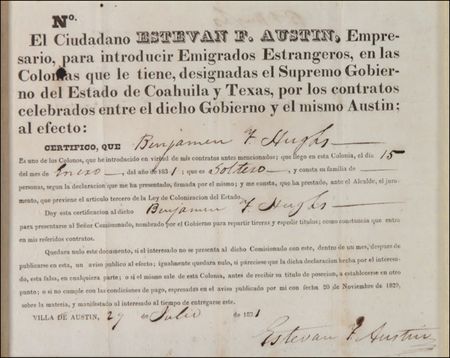 No.
El Ciudadano ESTEVAN F. AUSTIN, Empre-
sario, para introducir Emigrados Estrangeros, en las
Colonias que le tiene, designadas el Supremo Gobier-
no del Estado de Coahuila y Texas, por los contratos
celebrados entre el dicho Gobierno y el mismo Austin;
al efecto:
CERTIFICO, QUE Benjamen F Hughs
Es uno de los Colonos, que he introducido en virtud de mis contratos antes mencionados; que llego en esta Colonia, el dia 15
del mes de Enero del año de 1831; que es Soltero y consta su familia de
personas, segun la declaracion que me ha presentado, firmada por el mismo; y me consta, que ha prestado, ante el Alcalde, el jura-
mento, que previene el articulo tercero de la Ley de Colonizacion del Estado.
Doy esta certificacion al dicho Benjamen F Hughs
para presentarse al Señor Comisionado, nombrado por el Gobierno para repartir tierras y espedir titulos; como constancia que entro
en mis referidos contratos.
Quedara nulo este documento, si el interesado no se presenta al dicho Comisionado con este, dentro de un mes, despues de
publicarse en esta, un aviso publico al efecto; igualmente quedara nulo, si pareciese que la dicha declaracion hecha por el interesa-
do, esta falsa, en cualquiera parte; o si el mismo sale de esta Colonia, antes de recibir su titulo de posecion, a establecerse en otro
punto; o si no cumple con las condiciones de pago, espresadas en el aviso publicado por mi con fecha 20 de Noviembre de 1829,
sobre la materia, y manifestado al interesado al tiempo de entregarse este.
VILLA DE AUSTIN, 27 de Julio de 1831
Estevan F Austin